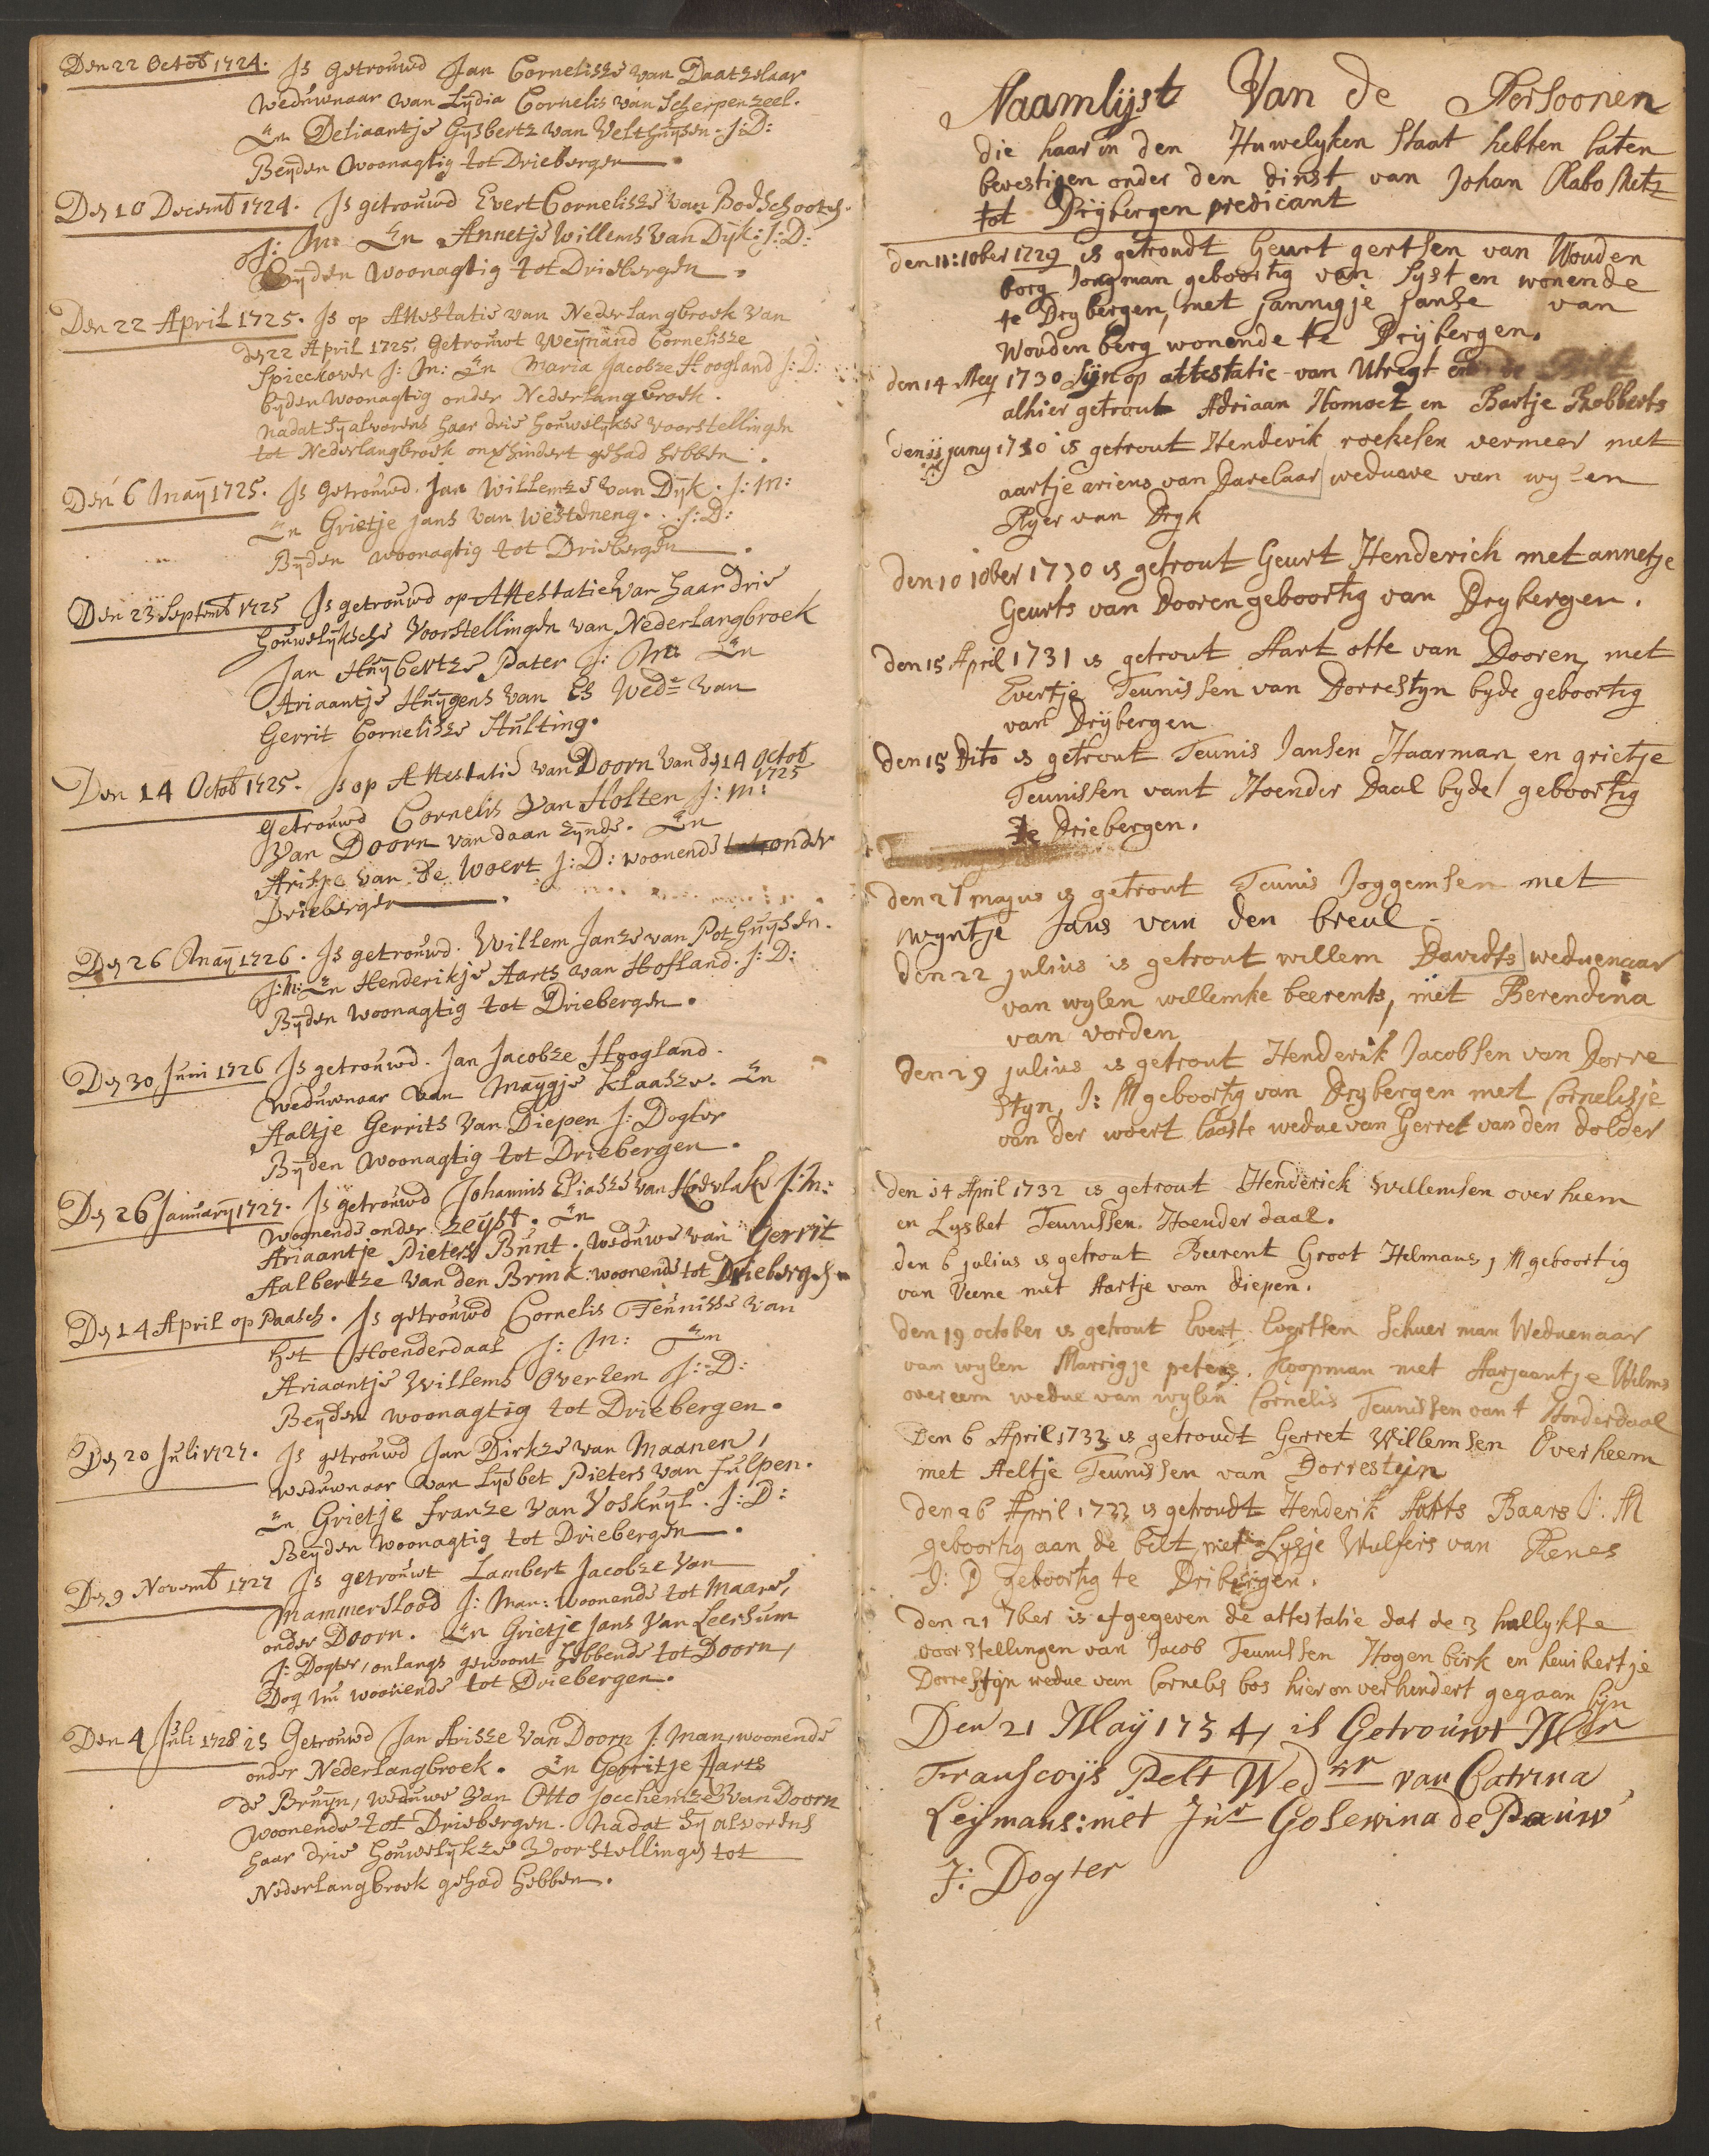 Den 22 Octob 1724. Is getrouwd Jan Cornelisze van Daatzelaar
Weduwnaar van Lydia Cornelis van Scherpenzeel.
En Deliaantje Gysbertz van Velthuysen. J: D:
Beyden Woonagtig tot Driebergen.
Den 10 Decemb 1724. Is getrouwd Evert Cornelisze van Bodschooten.
J: M: En Annetje Willems van Dyk: J: D:
Byden woonagtig tot Driebergen.
Den 22 April 1725. Is op Attestatie van Nederlangbroek van
den 22 April 1725. Getrouwt Weynand Cornelisze
Spieckoven J: M: En Maria Jacobze Hoogland J: D:
byden Woonagtig onder Nederlangbroek.
Nadat sy alvorens haar drie houwelykse voorstellingen
tot Nederlangbroek gehad hebben.
Den 6 May 1725. Is Getrouwd. Jan Willemze van Dyk. J: M:
En Grietje Jans van Westeneng. J: D:
Byden woonagtig tot Driebergen.
Den 23 Septemb 1725 Is getrouwd op Attestatie van haar drie
houwelyksche Voorstellingen van Nederlangbroek
Jan Huybertze Pater J: M: En
Ariaantje Huygens van Es Wede van
Gerrit Cornelisze Hulting.
Den 14 Octob 1725. Is op Attestatie van Doorn van den 14 Octob
1725
getrouwd Cornelis van Holten J: M:
Van Doorn vandaan zynde. En
van de Woert J: D: woonende onder
Driebergen.
Den 26 May 1726. Is getrouwd. Willem Janze van Pothuysen.
J: M: En Henderikje Aarts van Hofland. J: D:
Byden woonagtig tot Driebergen.
Den 30 Juni 1726 Is getrouwd. Jan Jacobze Hoogland.
Weduwnaar van Maygje Klaasze. En
Aaltje Gerrits van Diepen J: Dogter
Byden Woonagtig tot Driebergen.
Den 26 January 1727. Is getrouwd Johannis Eliasze van J: M:
Woonende onder Zeyst. En
Ariaantje Pieters Bunt. weduwe van Gerrit
Aalbertze van den Brink. woonende tot Driebergen
Den 14 April op Paasch. Is getrouwd Cornelis Teunisse van
het Hoenderdaal J: M: En
Ariaantje Willems Overhem J: D:
Beyden woonagtig tot Driebergen.
Den 20 Juli 1727. Is getrouwd Jan Dirkze van Maanen,
weduwnaar van Lysbet Pieters van Julpen.
En Grietje Franze van Voskuyl. J: D:
Beyden woonagtig tot Driebergen.
Den 9 Novemb 1727 Is getrouwt Lambert Jacobze van
Mammersload J: Man: woonende tot Maare,
onder Doorn. En Grietje Jans van Leersum
J: Dogter, onlangs gewoont hebbende tot Doorn,
Dog nu woonende tot Driebergen.
Den 4 Juli 1728 is Getrouwd Jan Arisze van Doorn J: man, woonende
onder Nederlangbroek. En Gerritje Aarts
de Bruyn, weduwe van Otto Jochemze van Doorn
woonende tot Driebergen. Nadat sy alvorens
haar drie houwelykze Voorstellingen tot
Nederlangbroek gehad hebben.
Naamlijst Van de Persoonen
die haar in den Huwelyken Staat hebben laten
bevestigen onder den dinst van Johan Rabo Metz
tot Drijbergen predicant
den 11: 10ber 1729 is getroudt Geurt gertsen van Wouden
borg Jongman geboortig van Syst en wonende
te Drybergen, met jannigje Janse van
Woudenberg wonende te Drijbergen.
den 14 Mey 1730 Sijn op attestatie van Utregt en de Bilt
alhier getrout Adriaan Homoet en Bartje Robberts
den juny 1730 is getrout Henderik roeksen vermeer met
aartje ariens van Darelaar weduwe van wylen
Ryer van Dryk
den 10 10ber 1730 is getrout Geurt Henderich met annetje
Geurts van Dooren geboortig van Drybergen.
den 15 April 1731 is getrout Aart otte van Dooren, met
Evertje Teunissen van Dorrestyn byde geboortig
van Drijbergen
den 15 Dito is getrout Teunis Jansen Haarman en grietje
Teunissen vant Hoender Daal byde geboortig
te Driebergen.
den 27 majus is getrout Teunis Joggemsen met
wyntje Jans van den breul
den 22 julius is getrout willem Davedts weduenaar
van wylen willemke beerents, met Berendina
van vorden
den 29 julius is getrout Henderik Jacobsen van Dorre
styn, J: M geboortig van Drybergen met Cornelisje
van der woert laaste wedue van Gerret van den dolder
den 14 April 1732 is getrout Henderick Willemsen over heem
en Lysbet Teunissen Hoender daal.
den 6 julius is getrout Beerent Groot Helmaus, J M geboortig
van Veene met Aartje van diepen.
den 19 october is getrout Evert Evertsen Schuer man Weduenaar
van wylen Marrigje peters. Koopman met Aarjaantje Wilms
overeem wedue van wylen Cornelis Teunissen van t Honderdaal
Den 6 April 1733 is getroudt Gerret Willemsen Overheem
met Aeltje Teunissen van Dorresteijn
den 26 April 1733 is getroudt Henderik Aarts Baars J: M
geboortig aan de bilt, met Lysje Wulfers van Renes
J: D geboortig te Dribergen.
den 21 7ber is afgegeven de attestatie dat de 3 hullykse
voorstellingen van Jacob Teunissen Hogen birk en
Dorrestijn wedue van Cornelis bos hier onverhindert gegaan sijn
Den 21 Maÿ 1734, is Getrouwt Mr
Franscoys Pelt Wednr van Catrina
Leijmans: met Jur Gosewina de Pauw
J: Dogter